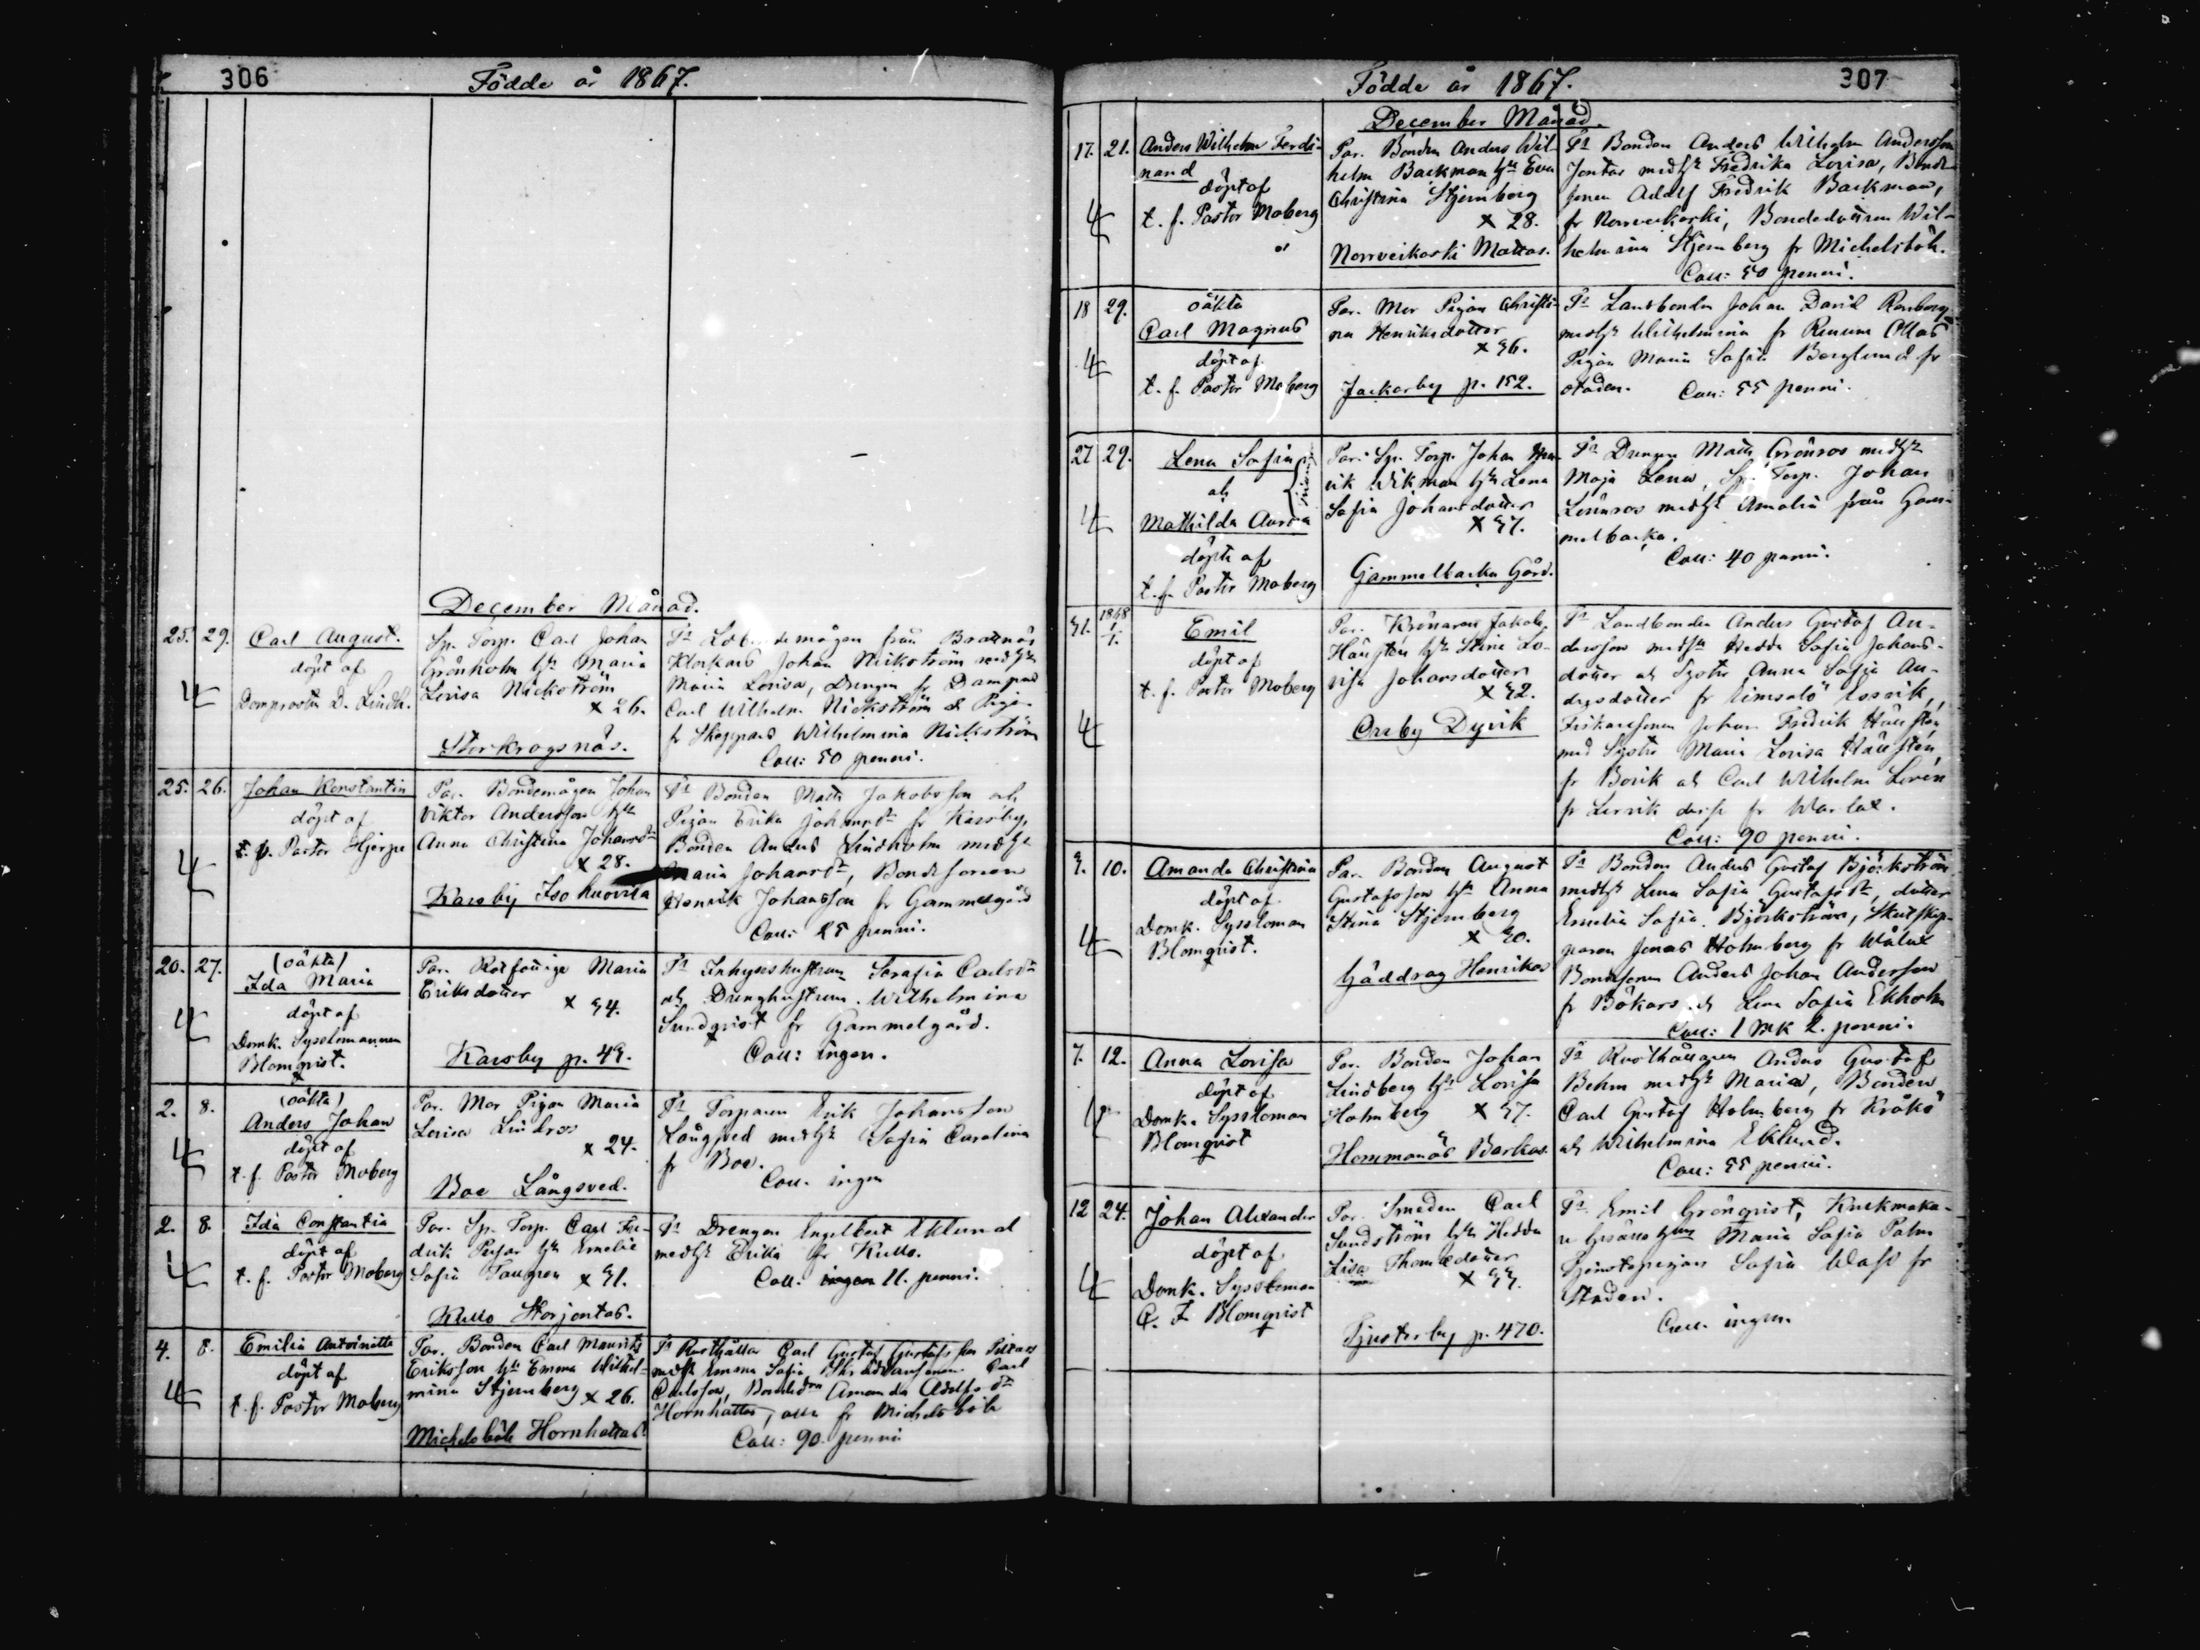 306
Födde år 1867.
December Månad.
25. 29. Carl August.
döpt af
Domprosten D. Lindh.
Sp. Torp. Carl Johan
Grönholm h. Maria
Lovisa Nickström
x 26.
Storkrogsnäs.
från Brattnäs
Klockars Johan Nickström
Maria Lovisa, Drengen fr
Carl Wilhelm Nickström &
fr Skeppars Wilhelmina Nickström
Coll: 50 penni.
25. 26. Johan Konstantin
döpt af
t. f. Pastor Hjerpe
Par. Bondemågen Johan
Viktor Andersson
Anna Christina Johansd
x 28.
Karsby Iso huovila
Bonden Matts Jakobsson och
Pigan Erika fr Karsby,
Bonden Anders Lindholm
Maria Johansd, Bondesonen
Henrik Johansson fr Gammelgård
Coll: 25 penni.
20. 27. (oäkta)
Ida Maria
döpt af
Domk. Sysslomannen
Blomqvist.
Par. Rotfattige Maria
Eriksdotter x 34.
Karsby p. 49.
Inhyseshustrun Serafia Carlsd
och Drenghustrun Wilhelmina
Sundqvist fr Gammelgård.
Coll: ingen.
2. 8. (oäkta)
Anders Johan
döpt af
t. f. Pastor Moberg
Par. Mor Pigan Maria
Lovisa Lindros
x 24.
Boe Långsved.
Torparen Erik Johansson
Långsved Sofia Carolina
fr Boe.
Coll: ingen
2. 8. Ida Constantia
döpt af
t. f. Pastor Moberg
Par. Sp. Torp. Carl Fre-
drik h. Emelie
Sofia x 31.
Kullo Storjontas.
Drengen Engelbert Eklund
Erika fr Kullo.
Coll: ingen 11. penni.
4. 8. Emilia Antoinette
döpt af
t. f. Pastor Moberg
Par. Bonden Carl Maurits
Eriksson h. Emma Wilhel-
mina Stjernberg x 26.
Michelsböle Hornhattas
Rusthållar Carl Gustaf Gustafsson
Emma Sofia, Carl
Carlsson, Amanda Adolfsd
Hornhattas, alla fr Michelsböle
Coll: 90 penni
Födde år 1867.
307
December Månad.
17. 21. Anders Wilhelm Ferdi-
nand
döpt af
t. f. Pastor Moberg
Par. Bonden Anders Wil-
helm Backman h. Eva
Christina Stjernberg
x 28.
Norrveckoski Mattas.
Bonden Anders Wilhelm Andersson
Jontas Fredrika Lovisa, Bonde-
sonen Adolf Fredrik Backman,
fr Norrveckoski, Bondedottren Wil-
helmina Stjernberg fr Michelsböle.
Coll: 50 penni.
18 29. oäkta
Carl Magnus
döpt af
t. f. Pastor Moberg
Par. Mor Pigan Christi-
na Henriksdotter
x 36.
Jackarby p. 152.
Landbonden Johan David Renberg
Wilhelmina fr Ollas
Pigan Maria Sofia Berglund fr
staden. Coll: 55 penni.
27 29. Lena Sofia
och
Mathilda Aurora
döpte af
t. f. Pastor Moberg
Par: Sp. Torp. Johan Hen-
rik Wikman h. Lena
Sofia Johansdotter
x 37.
Gammelbacka Gård.
Drengen Matts Grönroos
Maja Lena, Sp. Torp. Johan
Lönnroos Amalia från Gam-
melbacka.
Coll: 40 penni.
31. 1868 1/1. Emil
döpt af
t. f. Pastor Moberg
Par. Jakob
h. Stina Lo-
visa Johansdotter
x 32.
Orrby Dyvik
Landbonden Anders Gustaf An-
dersson Hedda Sofia Johans-
dotter och Syster Anna Sofia An-
dersdotter fr Emsalö
Johan Fredrik
med Syster Maria Lovisa
och Carl Wilhelm Lorén
Coll: 90 penni.
3. 10. Amanda Christina
döpt af
Domk. Syssloman
Blomqvist.
Par. Bonden August
Gustafsson h. Anna
Stina Stjernberg
x 30.
Gäddrag Henrikas
Bonden Anders Gustaf Björkström
Lena Sofia Gustafsd, dotter
Emelia Sofia Björkström, Skutskep-
paren Jonas Holmberg fr Wålax
Bondesonen Anders Johan Andersson
fr Bökars och Lena Sofia Ekholm
Coll: 1 Mk 2. penni.
7. 12. Anna Lovisa
döpt af
Domk. Syssloman
Blomqvist
Par. Bonden Johan
Lindberg h. Lovisa
Holmberg x 37.
Hommanäs Barkas.
Rusthållaren Anders Gustaf
Behm Maria, Bonden
Carl Gustaf Holmberg fr Kråkö
och Wilhelmina Eklund.
Coll: 55 penni.
12 24. Johan Alexander
döpt af
Domk. Syssloman
C. F. Blomqvist
Par. Smeden Carl
Sundström h. Hedda
Lisa Thomasdotter
x 33.
Tjusterby p. 470.
Emil Grönqvist, Krukmaka-
re Maria Sofia Palm
Tjenstepigan Sofia fr
Staden.
Coll: ingen